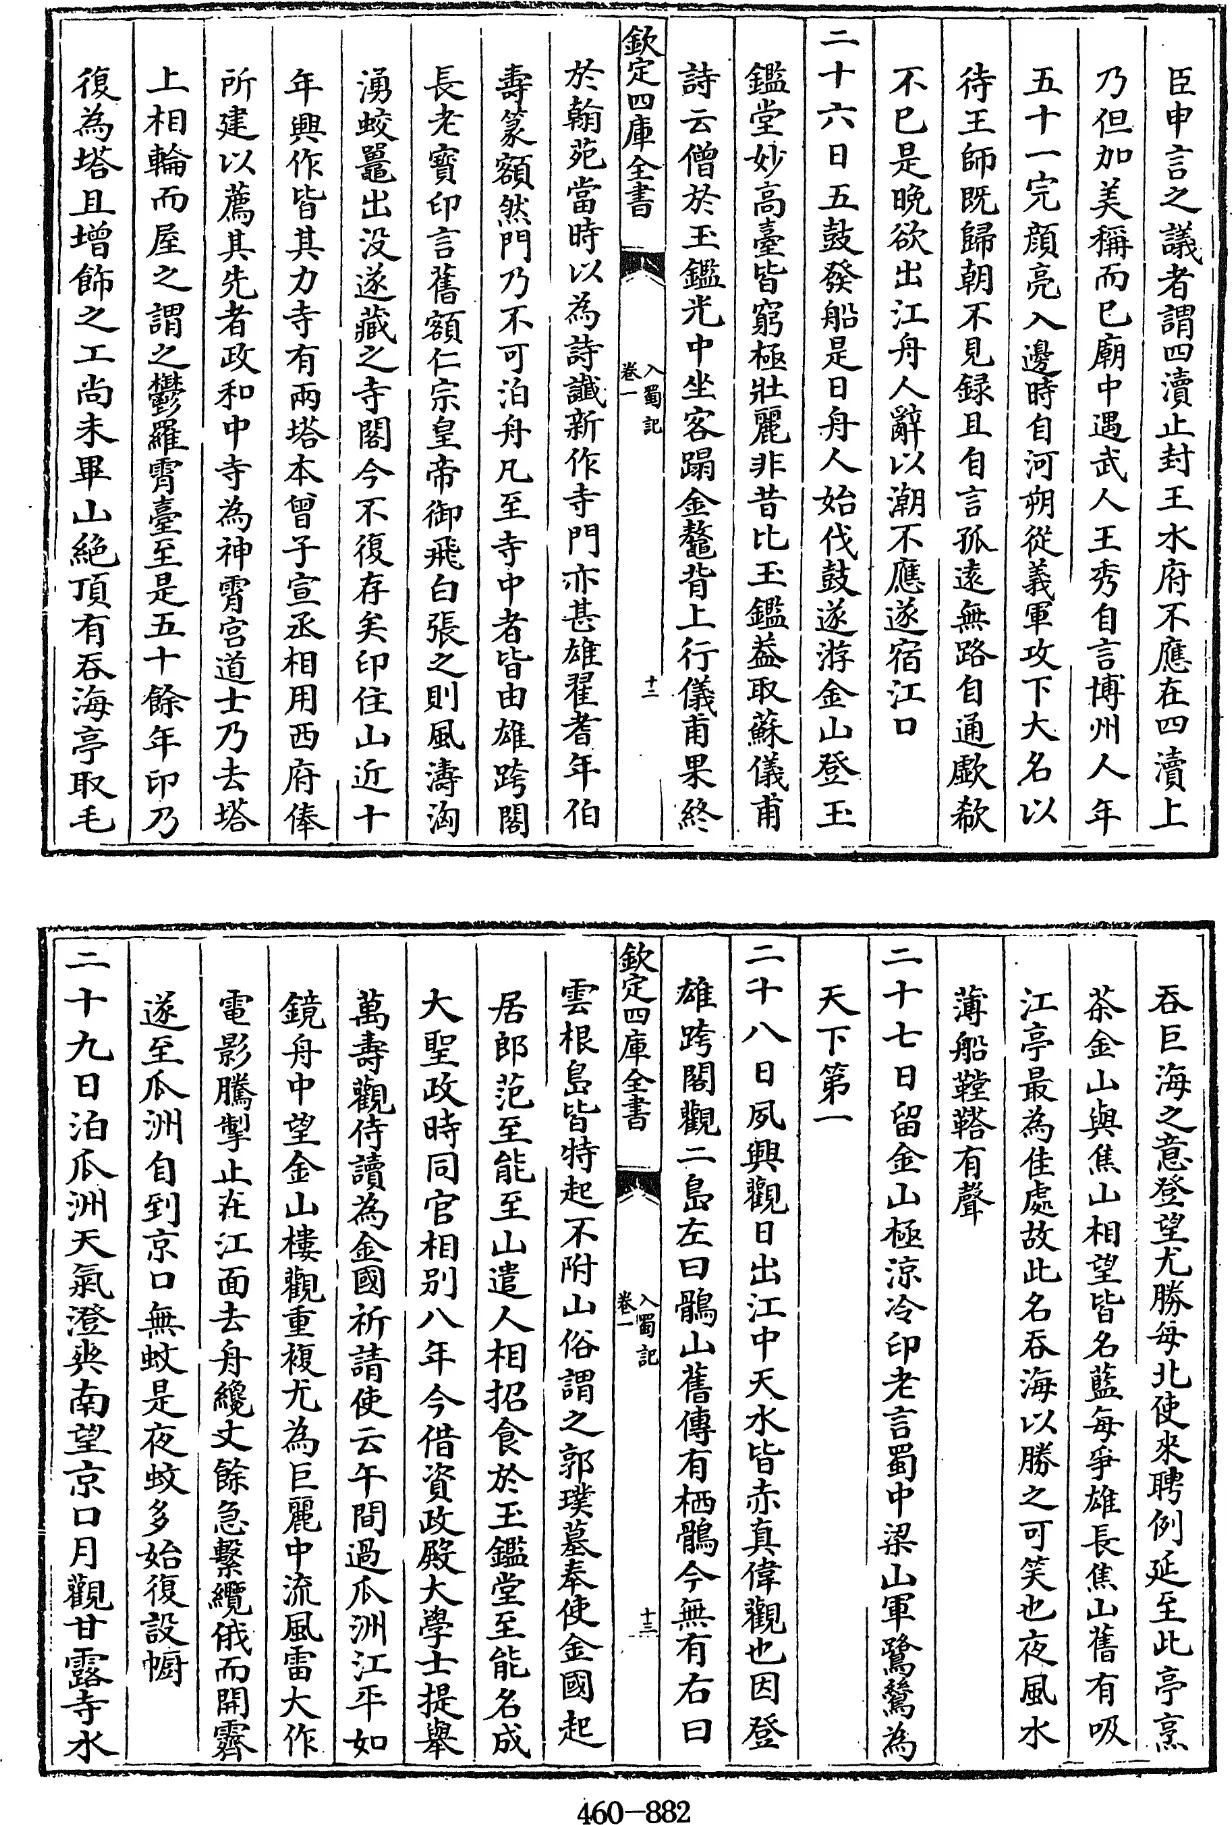 臣申言之議者謂四瀆止封王水府不應在四瀆上
乃但加美稱而已廟中遇武人王秀自言博州人年
五十一完顔亮入邊時自河朔從義軍攻下大名以
待王師既歸朝不見録且自言孤遠無路自通歔欷
不已是晩欲出江舟人辭以潮不應遂宿江口
二十六日五鼓發船是日舟人始伐鼓遂游金山登玉
鑑堂妙高臺皆窮極壯麗非昔比玉鑑葢取蘇儀甫
詩云僧於玉鑑光中坐客蹋金鼇背上行儀甫果終
欽定四庫全書
入蜀記
卷一
十二
於翰苑當時以為詩讖新作寺門亦甚雄翟耆年伯
壽篆額然門乃不可泊舟凡至寺中者皆由雄跨閣
長老寳印言舊額仁宗皇帝御飛白張之則風濤洶
湧蛟鼉出没遂藏之寺閣今不復存矣印住山近十
年興作皆其力寺有兩塔本曾子宣丞相用西府俸
所建以薦其先者政和中寺為神霄宫道士乃去塔
上相輪而屋之謂之鬱羅霄臺至是五十餘年印乃
復為塔且增飾之工尚未畢山絶頂有吞海亭取毛
吞巨海之意登望尤勝每北使來聘例延至此亭烹
茶金山與焦山相望皆名藍每爭雄長焦山舊有吸
江亭最為佳處故此名吞海以勝之可笑也夜風水
薄船鞺鞳有聲
二十七日留金山極涼冷印老言蜀中梁山軍鷺鷥為
天下第一
二十八日夙興觀日出江中天水皆赤真偉觀也因登
雄跨閣觀二島左曰鶻山舊傳有栖鶻今無有右曰
欽定四庫全書
入蜀記
卷一
十三
雲根島皆特起不附山俗謂之郭璞墓奉使金國起
居郎范至能至山遣人相招食於玉鑑堂至能名成
大聖政時同官相别八年今借資政殿大學士提舉
萬壽觀侍讀為金國祈請使云午間過瓜洲江平如
鏡舟中望金山樓觀重複尤為巨麗中流風雷大作
電影騰掣止在江面去舟纔丈餘急繫纜俄而開霽
遂至瓜洲自到京口無蚊是夜蚊多始復設幮
二十九日泊瓜洲天氣澄爽南望京口月觀甘露寺水
460-882